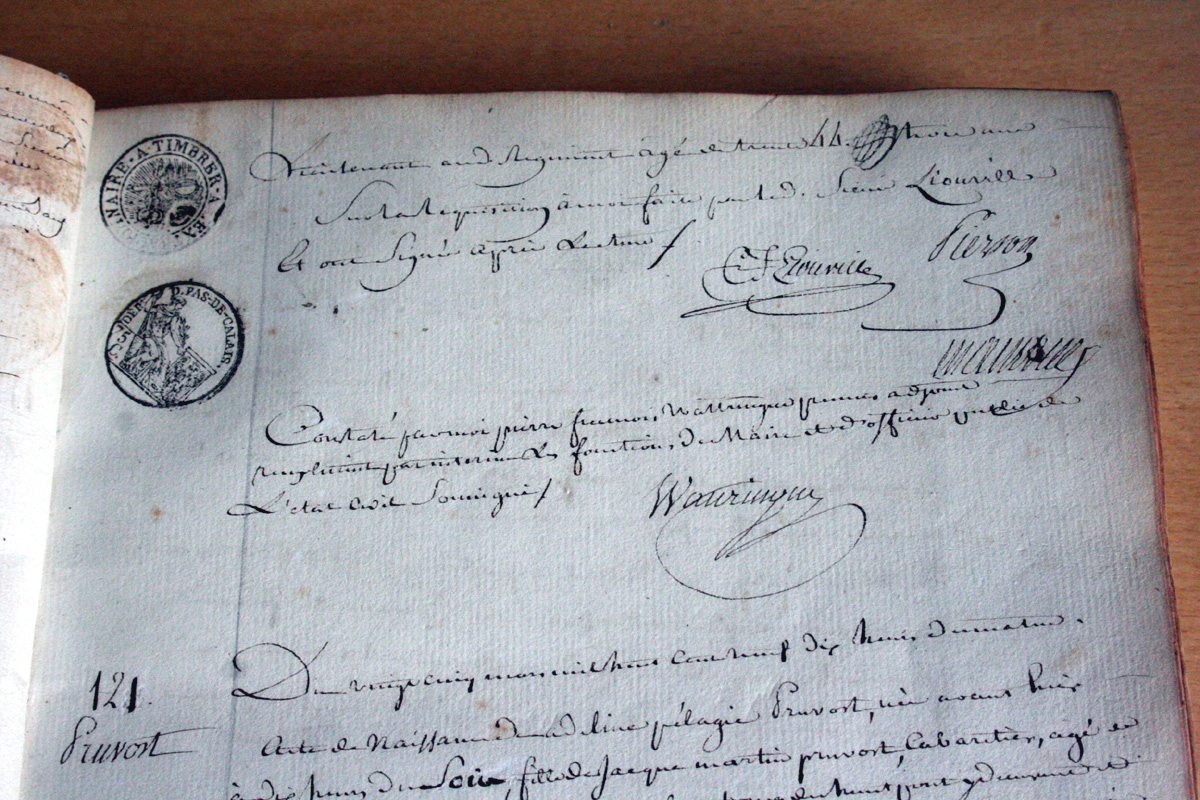 NAIRE · A · TIMBRER · A · L'EX
Lieutenant aud. Regiment agé de trente 44. trois ans
Sur la requisition à moi faite par led. Sieur Liouville
Et ont Signé après Lecture /
CF Liouville
Pierson
D. PAS-DE-CALAIS.
Constaté par moi pierre francois Wattringue premier adjoint
remplissant par interim Les fonctions de Maire et d'officier public de
L'état Civil Soussigné /
Wattringue
121.
Pruvost
Du vingt cinq mars mil huit Cent neuf dix heures du matin.
Acte de Naissance de adeline pélagie Pruvost, née avant hier
à dix heures du Soir, fille de Jacque martin pruvost, Cabaretier, agé de